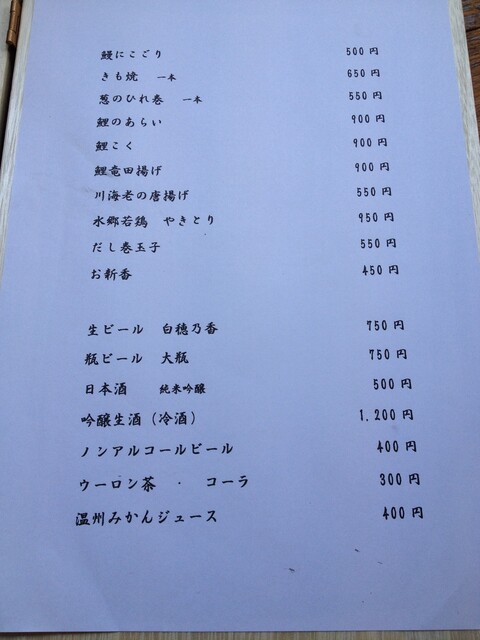 鰻にこごり 500円
きも焼 一本 650円
葱のひれ巻 一本 550円
鯉のあらい 900円
鯉こく 900円
鯉竜田揚げ 900円
川海老の唐揚げ 550円
水郷若鶏 やきとり 950円
だし巻玉子 550円
お新香 450円
生ビール 白穂乃香 750円
瓶ビール 大瓶 750円
日本酒 純米吟醸 500円
吟醸生酒(冷酒) 1.200円
ノンアルコールビール 400円
ウーロン茶 ・ コーラ 300円
温州みかんジュース 400円